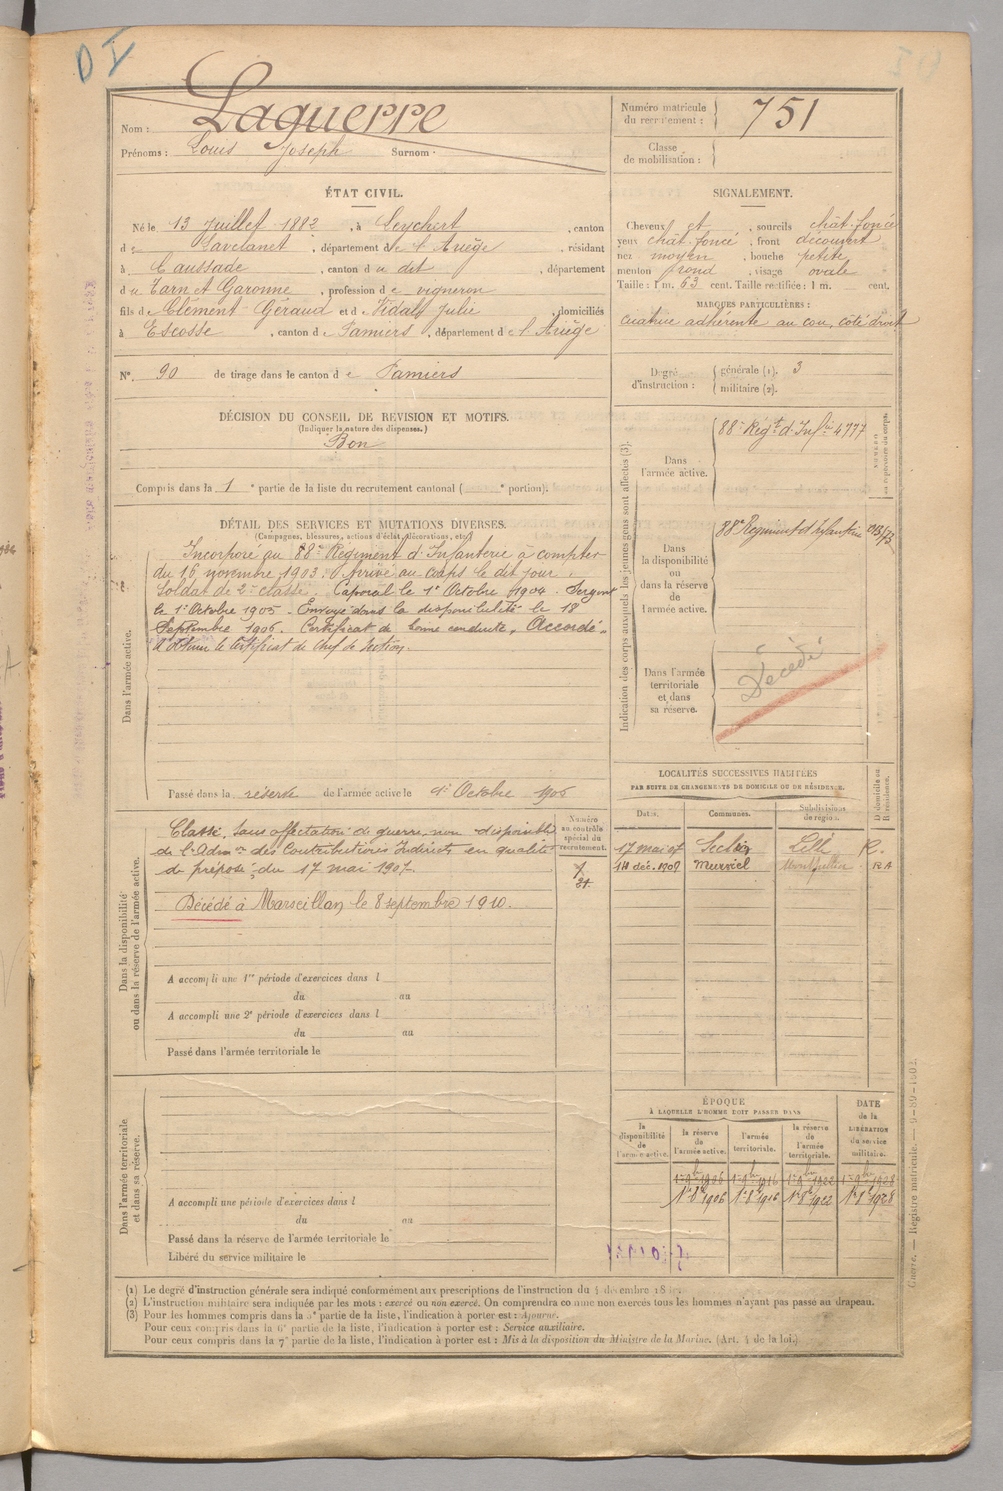 OI
Nom : Laguerre
Prénoms : Louis Joseph Surnom :
Numéro matricule du recrutement : 751
Classe de mobilisation :
ÉTAT CIVIL.
Né le 13 Juillet 1882, à Leychert, canton
de Lavelanet, département de l'Ariège, résidant
à Caussade, canton du dit, département
du Tarn et Garonne, profession de vigneron
fils de Clément Géraud et de Vidal Julie, domiciliés
à Escosse, canton de Pamiers, département de l'Ariège
N° 90 de tirage dans le canton de Pamiers
SIGNALEMENT.
Cheveux et, sourcils chât. foncé
yeux chât. foncé, front découvert
nez moyen, bouche petite
menton rond, visage ovale
Taille : 1 m. 63 cent. Taille rectifiée : 1 m. cent.
MARQUES PARTICULIÈRES :
cicatrice adhérente au cou, côté droit
Degré d'instruction : générale (1). 3
militaire (2).
DÉCISION DU CONSEIL DE REVISION ET MOTIFS.
(Indiquer la nature des dispenses.)
Bon
Compris dans la 1e partie de la liste du recrutement cantonal ( e portion).
DÉTAIL DES SERVICES ET MUTATIONS DIVERSES.
(Campagnes, blessures, actions d'éclat, décorations, etc.)
Dans l'armée active.
Incorporé au 88e Régiment d'Infanterie à compter
du 16 novembre 1903. Arrivé au corps le dit jour,
Soldat de 2e classe. Caporal le 1er Octobre 1904. Sergent
le 1er Octobre 1905. Envoyé dans la disponibilité le 18
Septembre 1906. Certificat de bonne conduite "Accordé"
A obtenu le certificat de chef de section.
Passé dans la réserve de l'armée active le 1er Octobre 1906
Indication des corps auxquels les jeunes gens sont affectés (3).
NUMÉRO au répertoire du corps.
Dans l'armée active.
88e Régt d'Infie 4777
Dans la disponibilité ou dans la réserve de l'armée active.
88e Regiment d'infanterie
Dans l'armée territoriale et dans sa réserve.
Décédé
Dans la disponibilité ou dans la réserve de l'armée active.
Numéro au contrôle spécial du recrutement.
Classé, sans affectation de guerre, non disponible
de l'Admon des Contributions Indirectes en qualité
de préposé, du 17 mai 1907.
Décédé à Marseillan le 8 septembre 1910.
A accompli une 1re période d'exercices dans l
du au
A accompli une 2e période d'exercices dans l
du au
Passé dans l'armée territoriale le
LOCALITÉS SUCCESSIVES HABITÉES
PAR SUITE DE CHANGEMENTS DE DOMICILE OU DE RÉSIDENCE.
Dates. Communes. Subdivisions de région. D domicile ou R résidence.
17 mai 07 Seclin Lille R.
14 déc. 1907 Murviel Montpellier RA
Dans l'armée territoriale et dans sa réserve.
A accompli une période d'exercices dans l
du au
Passé dans la réserve de l'armée territoriale le
Libéré du service militaire le
ÉPOQUE
À LAQUELLE L'HOMME DOIT PASSER DANS
la disponibilité de l'armée active. la réserve de l'armée active. l'armée territoriale. la réserve de l'armée territoriale. DATE de la LIBÉRATION du service militaire.
1er 9bre 1906 1er 9bre 1916 1er 9bre 1922 1er 9bre 1928
1er 8bre 1906 1er 8bre 1916 1er 8bre 1922 1er 8bre 1928
(1) Le degré d'instruction générale sera indiqué conformément aux prescriptions de l'instruction du 4 décembre
(2) L'instruction militaire sera indiquée par les mots : exercé ou non exercé. On comprendra comme non exercés tous les hommes n'ayant pas passé au drapeau.
(3) Pour les hommes compris dans la 5e partie de la liste, l'indication à porter est : Ajourné.
Pour ceux compris dans la 6e partie de la liste, l'indication à porter est : Service auxiliaire.
Pour ceux compris dans la 7e partie de la liste, l'indication à porter est : Mis à la disposition du Ministre de la Marine. (Art. 4 de la loi.)
Guerre. — Registre matricule.